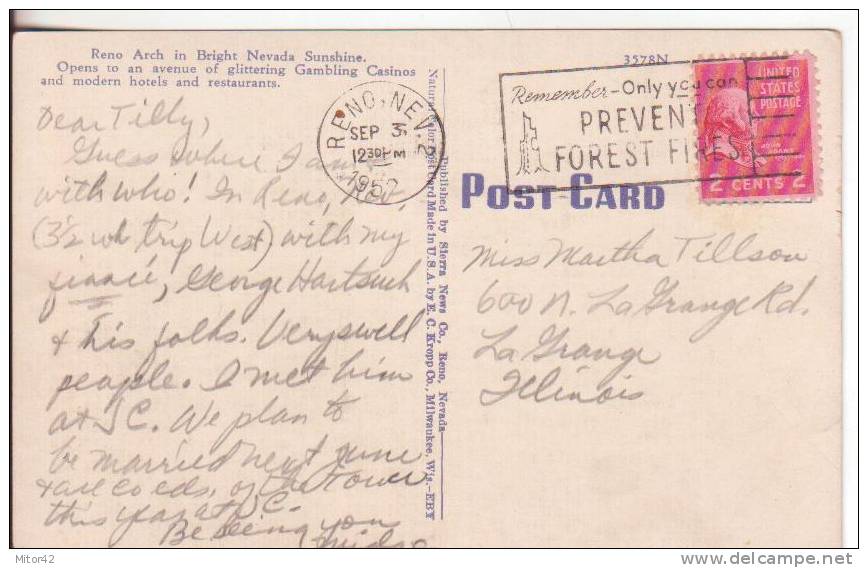 Reno Arch in Bright Nevada Sunshine.
Opens to an avenue of glittering Gambling Casinos
and modern hotels and restaurants.
Dear Tilly,
Guess where I am &
with who! In Reno, Nev.,
(3½ wk trip West) with my
fiancé, George Hartsuch
& his folks. Very swell
people. I met him
at J.C. We plan to
be married next June
+ are co eds. of the Tower
this year at J.C.
Be seeing you
Midge
Natural Color Post Card Made in U.S.A. by E. C. Kropp Co., Milwaukee, Wis.-EBY
Published by Sierra News Co., Reno, Nevada
RENO, NEV.
SEP 3
12 30 PM
1952
3578N
Remember-Only you can
PREVENT
FOREST FIRES
UNITED
STATES
POSTAGE
JOHN ADAMS
2 CENTS 2
POST CARD
Miss Martha Tillson
600 N. La Grange Rd.
La Grange
Illinois
Mitor42
delcampe.net